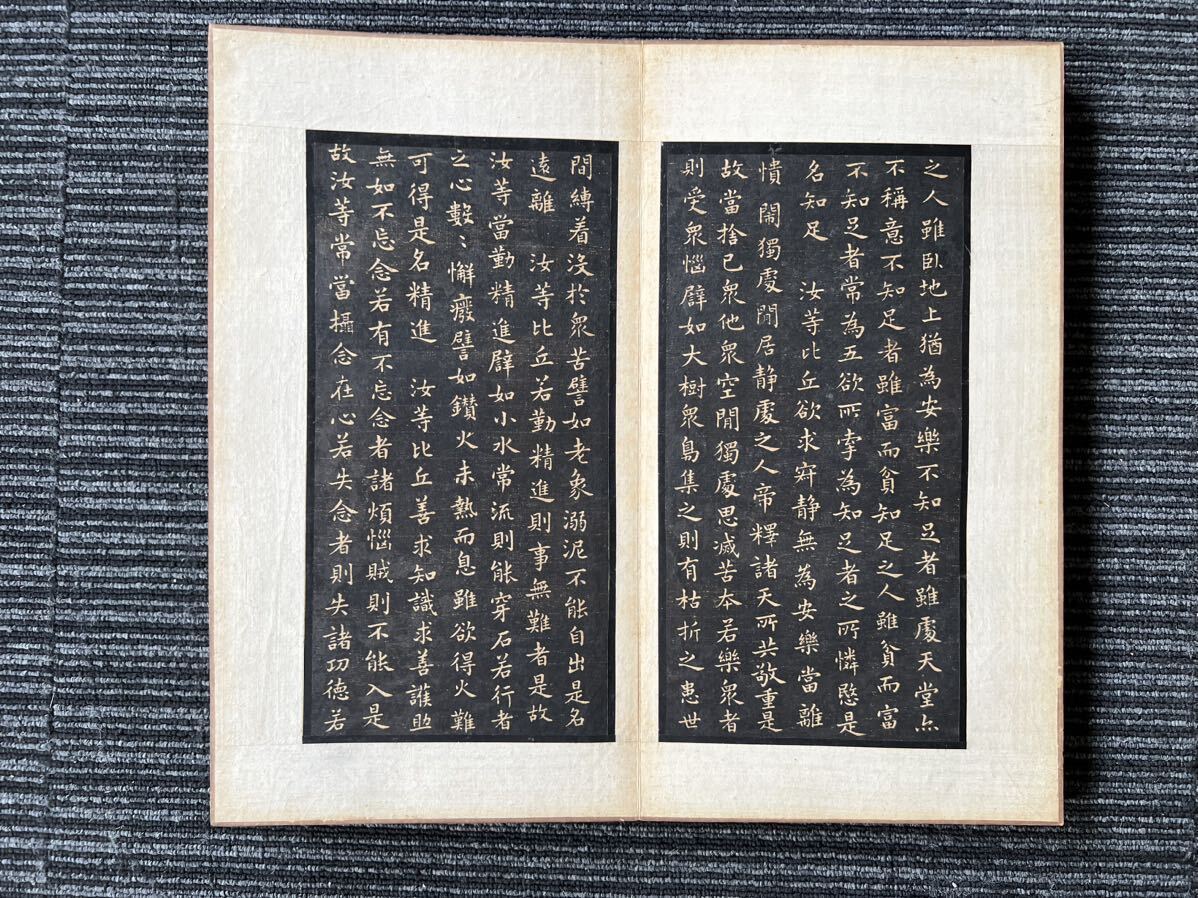 之人雖臥地上猶為安樂不知足者雖處天堂亦
不稱意不知足者雖富而貧知足之人雖貧而富
不知足者常為五欲所牽為知足者之所憐愍是
名知足　汝等比丘欲求寂静無為安樂當離
憒閙獨處閒居静處之人帝釋諸天所共敬重是
故當捨己衆他衆空閒獨處思滅苦本若樂衆者
則受衆惱譬如大樹衆鳥集之則有枯折之患世
間縛着沒於衆苦譬如老象溺泥不能自出是名
遠離　汝等比丘若勤精進則事無難者是故
汝等當勤精進譬如小水常流則能穿石若行者
之心數〻懈癈譬如鑚火未熱而息雖欲得火難
可得是名精進　汝等比丘善求知識求善護助
無如不忘念若有不忘念者諸煩惱賊則不能入是
故汝等常當攝念在心若失念者則失諸功德若